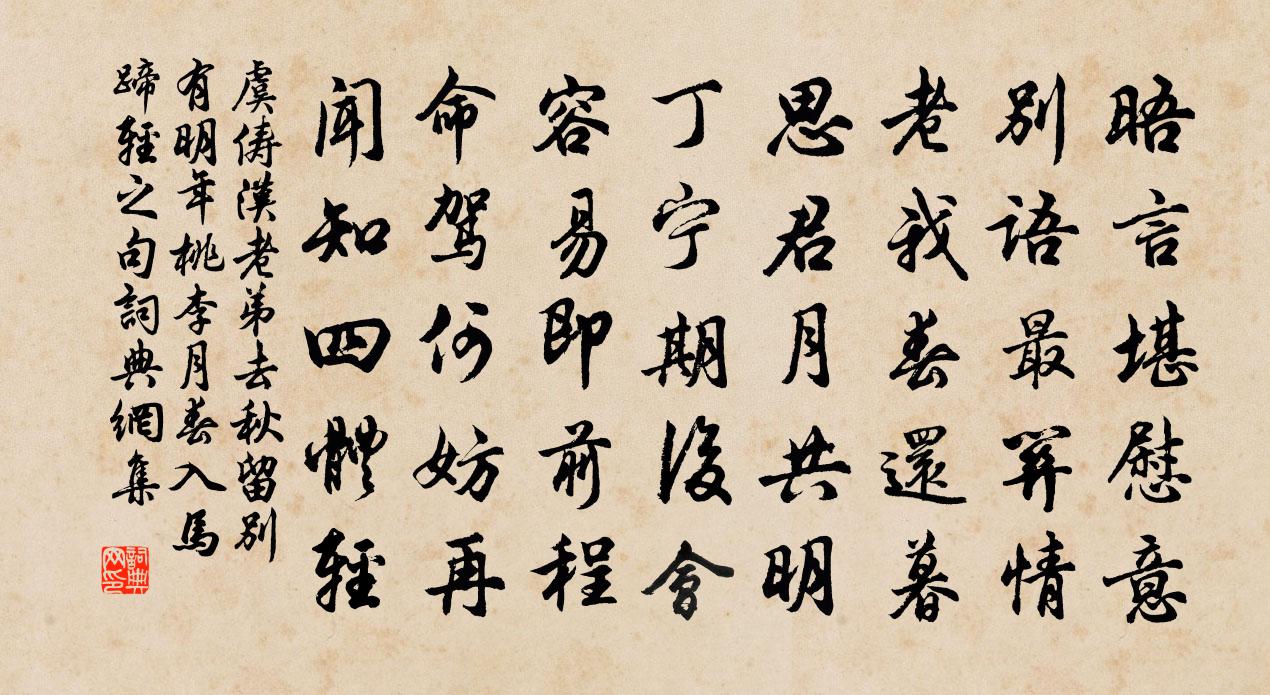 晤言堪慰意
別語最關情
老我春還暮
思君月共明
丁宁期後會
容易即前程
命駕何妨再
聞知四體輕
虞儔漢老弟去秋留別
有明年桃李月春入馬
蹄輕之句詞典網集
詞典
网印